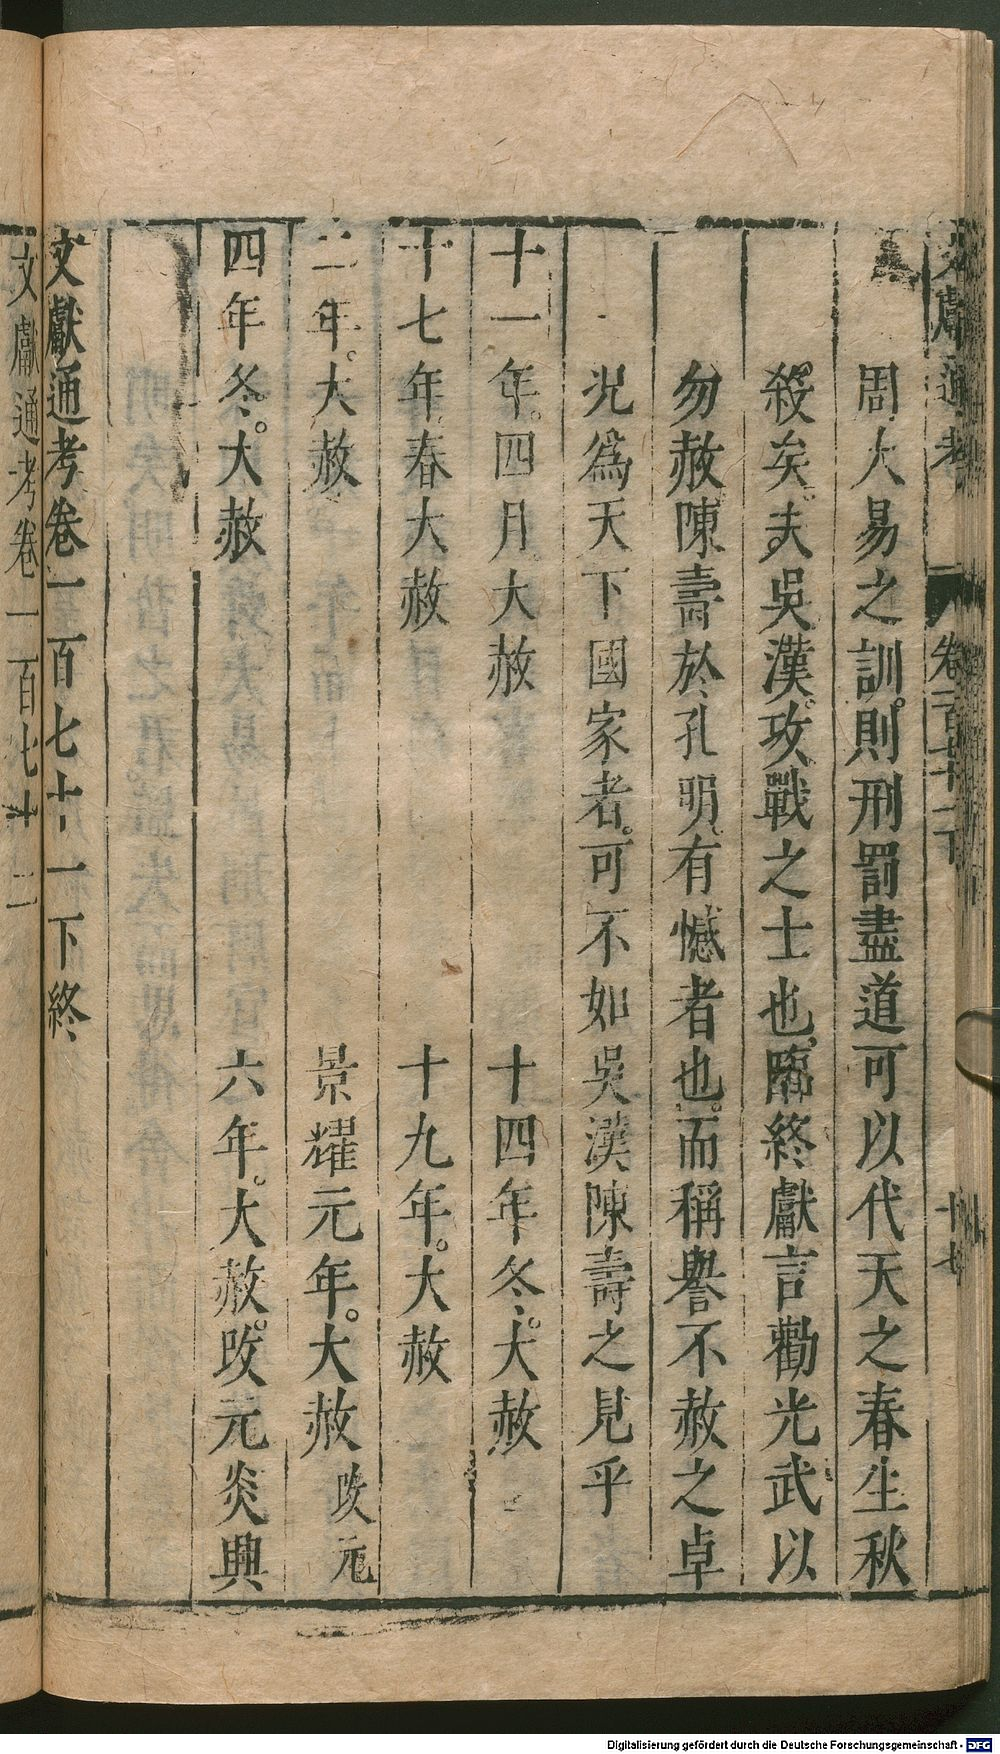 周大易之訓。則刑罰盡道可以代天之春生秋
殺矣。夫吳漢。攻戰之士也。臨終獻言勸光武以
勿赦陳壽於孔明。有憾者也。而稱譽不赦之卓
況為天下國家者。可不如吳漢陳壽之見乎
十一年。四月大赦 十四年冬。大赦
十七年。春大赦 十九年。大赦
二年。大赦 景耀元年。大赦 改元
四年冬。大赦 六年。大赦。改元炎興
文獻通考卷一百七十一下終
文獻通考卷一百七十二
Digitalisierung gefördert durch die Deutsche Forschungsgemeinschaft - DFG